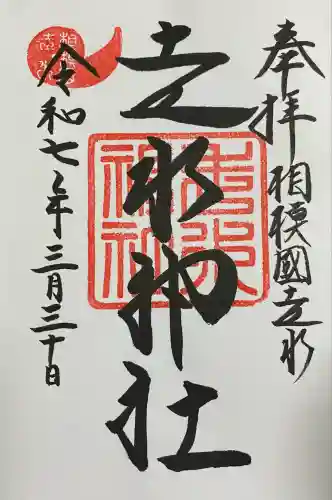 奉拝 相模國走水
走水神社
令和七年三月三十日
走水
神社